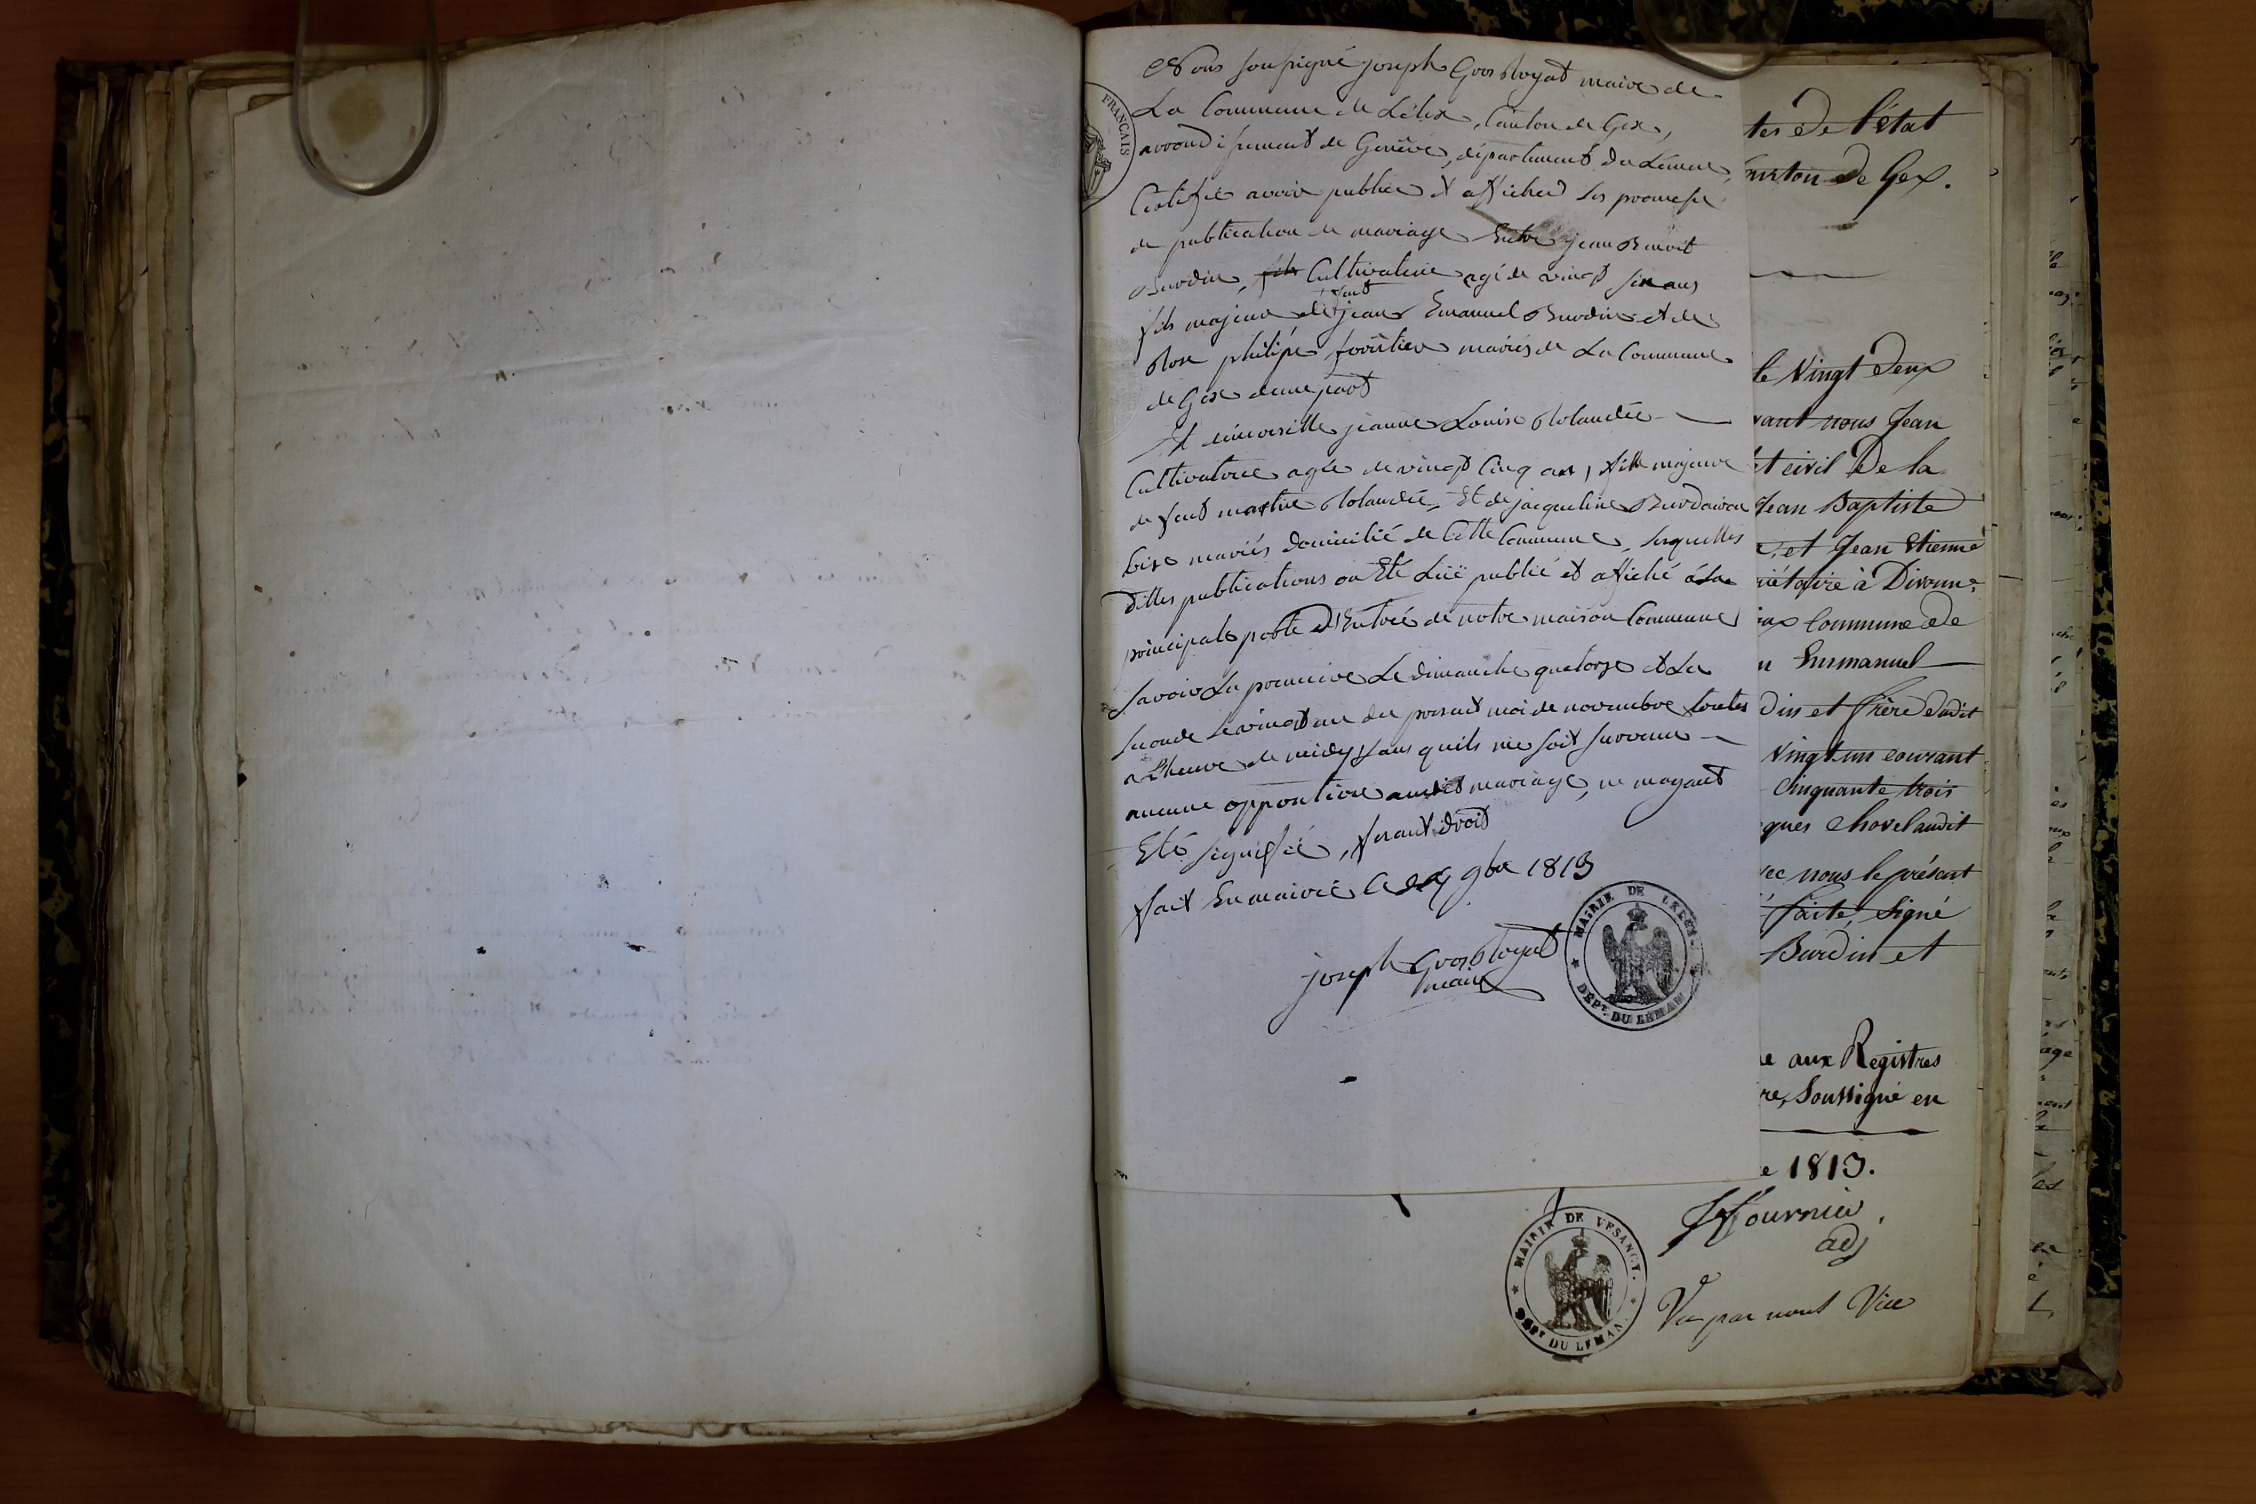 FRANCAIS
Nous soussigné joseph Gros Royat maire de
La Commune de Lélex, Canton de Gex,
arrondissement de Genève, département du Léman,
Certifie avoir publier et afficher les promesse
de publication de mariage Entre jean Benoit
Burdin, Cultivateur agé de vingt six ans
fils majeur de feut jean Emanuel Burdin et de
Rose philipe foretier mariés de La Commune
de Gex dune part
Et demoiselle jeanne Louise Rolandée
Cultivatrice agée de vingt Cinq ans, fille majeure
de feut Rolandée, Et de jacqueline
mariés domicilié de Cette Commune, lesquelles
dittes publications on Eté Luë publié et affiché à La
principale porte d'Entrée de notre maison Commune
Savoir La premiere Le dimanche quatorze et La
seconde Le vingt un du present moi de novembre toutes
a L'heure de midy sans quils nie soit survenu
aucune opposition audit mariage, ne mayant
Eté signifié, ferant droit
fait En mairie Le 9bre 1813
joseph Gros Royat
maire
MAIRIE DE LELEX.
DEPt. DU LEMAN
tes de l'état
Canton de Gex.
le Vingt deux
vant nous Jean
t civil de la
Jean Baptiste
et Jean Etienne
riétaire à Divonne
Commune de
n Emmanuel
din et frère dudit
Vingt un courant
Cinquante trois
ques Chovel audit
vec nous le présent
faite, Signé
Burdin et
e aux Registres
re, Soussigné en
e 1813.
Fournier
adj
MAIRIE DE VESANCY.
DEPt. DU LEMAN.
Vu par nous Vice